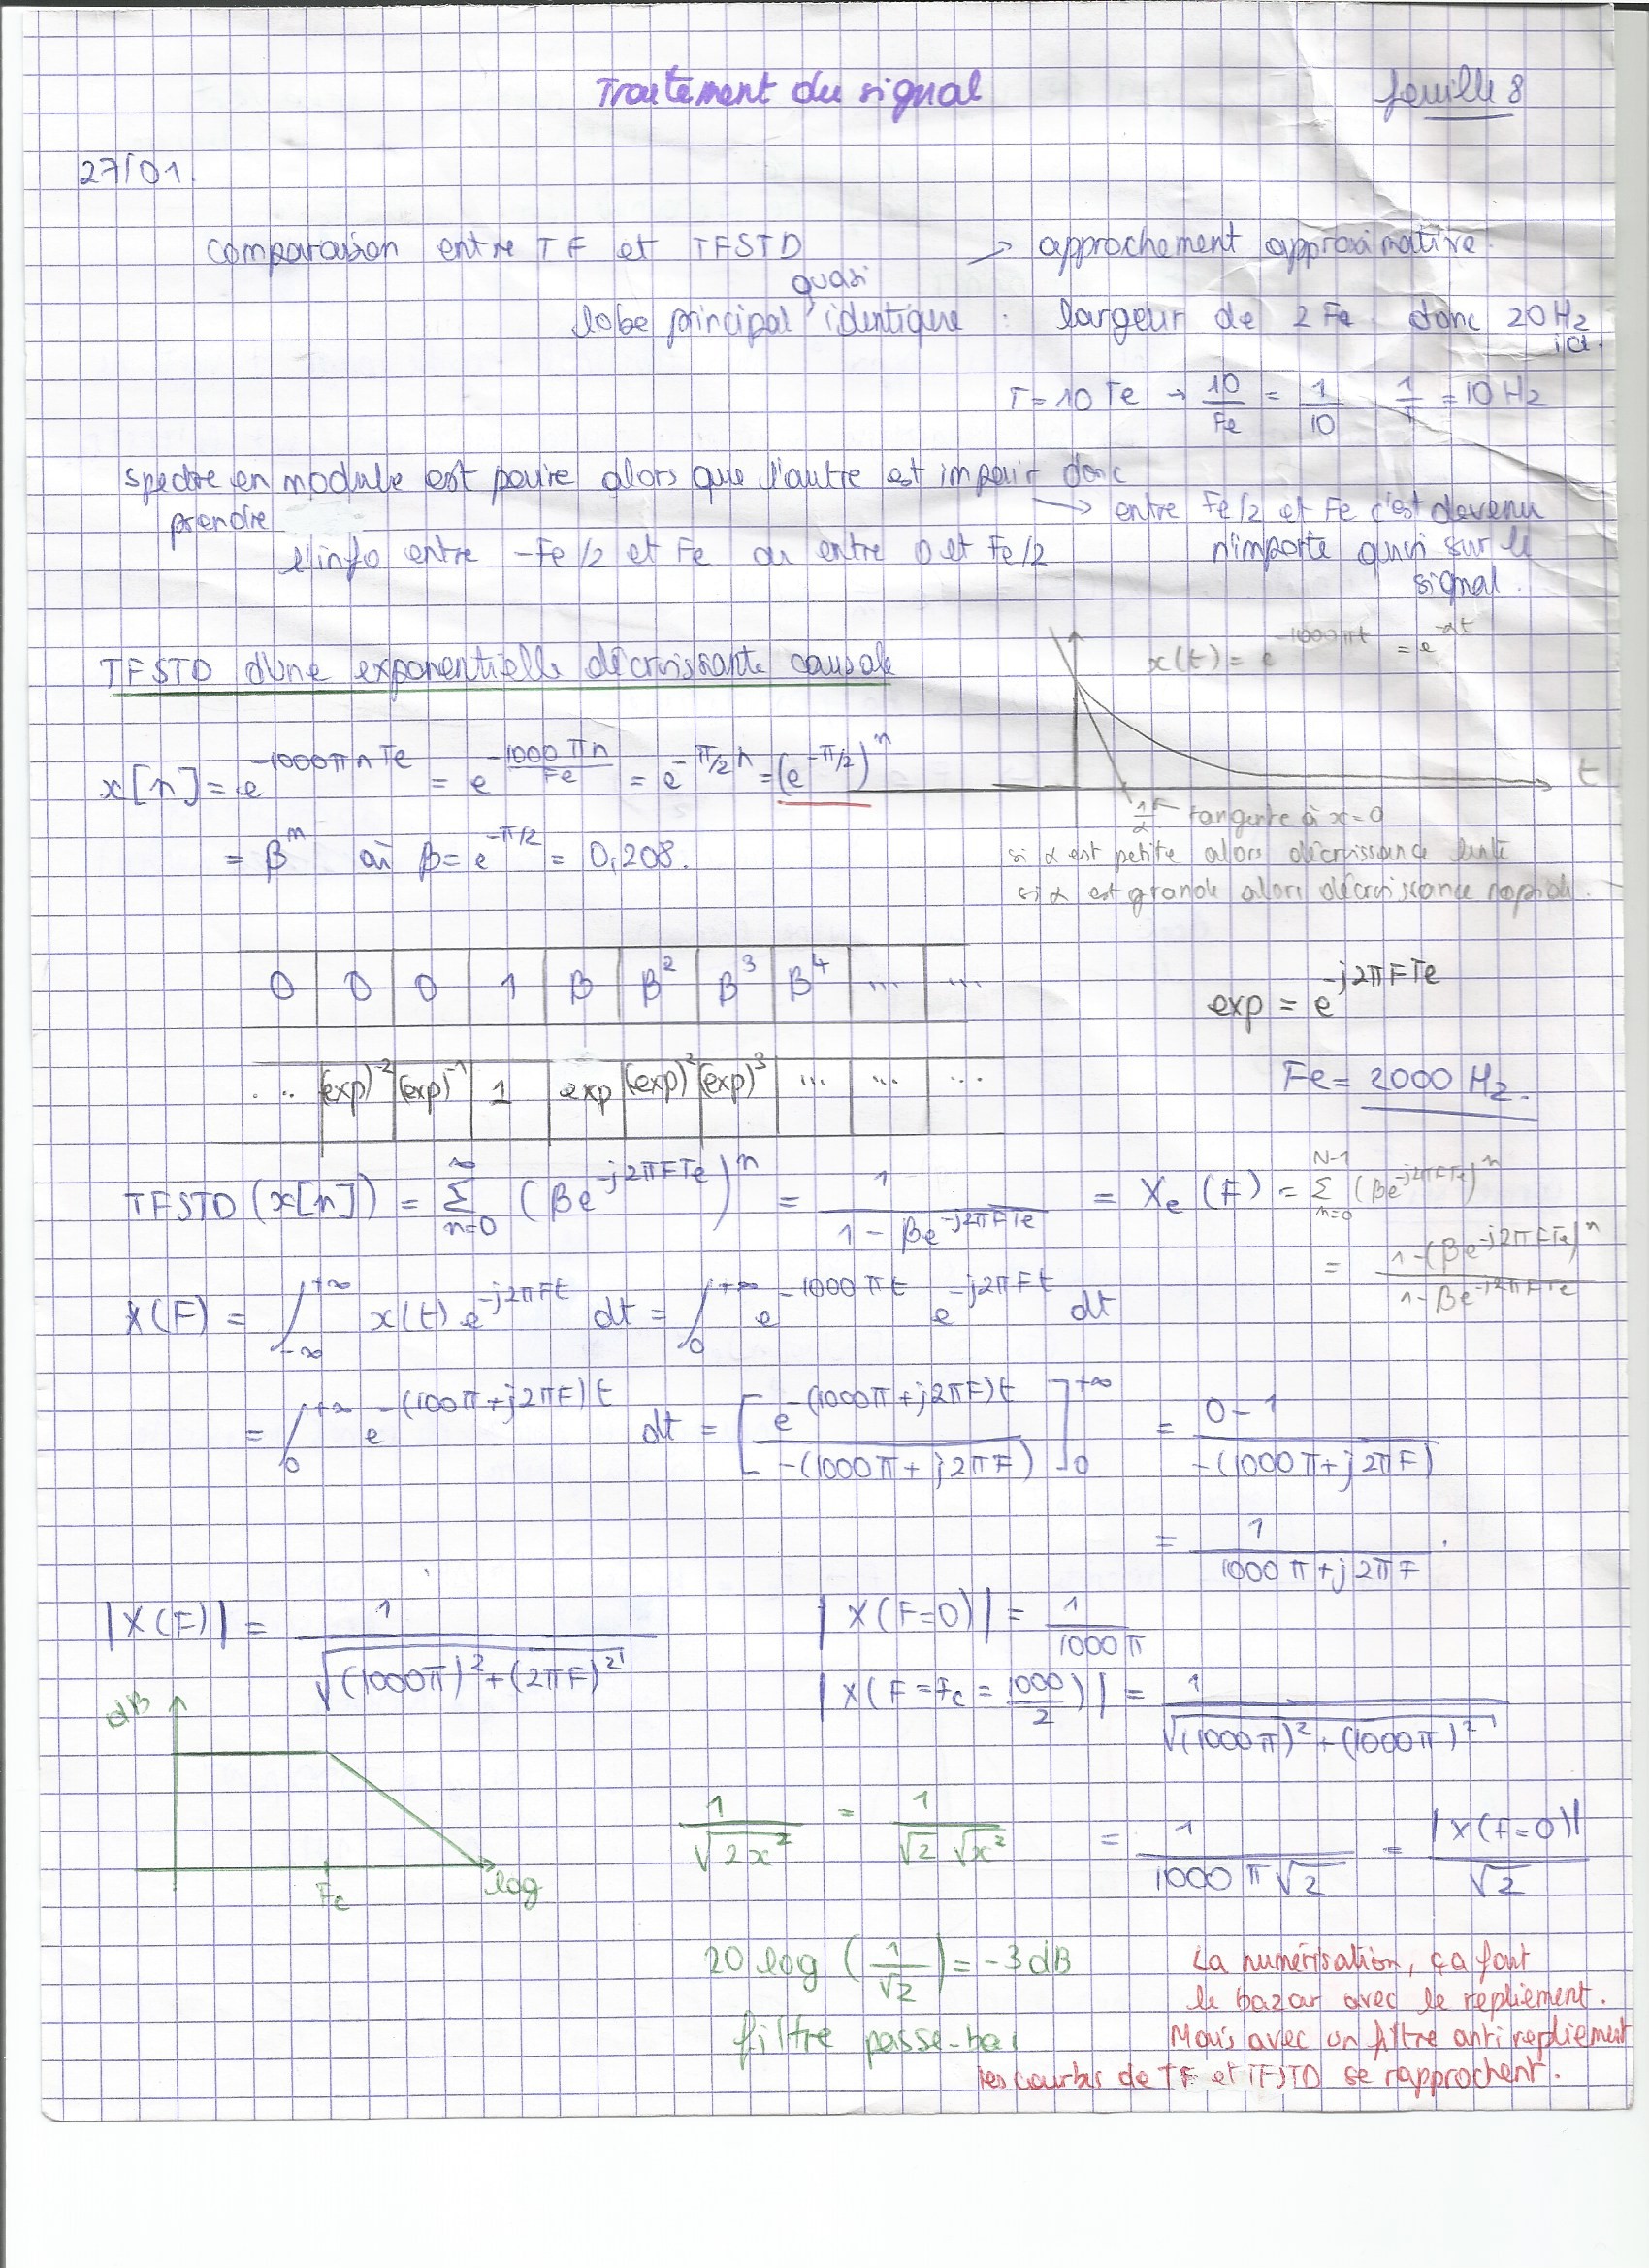 Traitement du signal
feuille 8
27/01.
comparaison entre TF et TFSTD → approchement approximative.
lobe principal quasi identique : largeur de 2 Fe donc 20 Hz ici.
T = 10 Te → 10/Fe = 1/10 1/T = 10 Hz
spectre en module est paire alors que l'autre est impair donc
prendre → entre Fe/2 et Fe c'est devenu
l'info entre -Fe/2 et Fe ou entre 0 et Fe/2 n'importe quoi sur le
signal.
TFSTD d'une exponentielle décroissante causale
x(t) = e^-1000πt = e^-αt
x[n] = e^-1000πnTe = e^-1000πn/Fe = e^-π/2 n = (e^-π/2)^n
t
1/α ← tangente à x=0
= β^n où β = e^-π/2 = 0,208.
si α est petite alors décroissance lente
si α est grande alors décroissance rapide.
0 0 0 1 β β² β³ β⁴ ... ...
exp = e^-j2πFTe
... (exp)^-2 (exp)^-1 1 exp (exp)² (exp)³ ... ... ...
Fe = 2000 Hz.
TFSTD (x[n]) = Σ_{n=0}^{∞} (βe^-j2πFTe)^n = 1/(1 - βe^-j2πFTe) = Xe (F) = Σ_{n=0}^{N-1} (βe^-j2πFTe)^n
= (1-(βe^-j2πFTe)^n)/(1-βe^-j2πFTe)
X(F) = ∫_{-∞}^{+∞} x(t) e^-j2πFt dt = ∫_0^{+∞} e^-1000πt e^-j2πFt dt
= ∫_0^{+∞} e^-(100π+j2πF)t dt = [e^-(1000π+j2πF)t / -(1000π+j2πF)]_0^{+∞} = (0-1)/(-(1000π+j2πF))
= 1/(1000π+j2πF).
|X(F)| = 1/√((1000π)²+(2πF)²)
|X(F=0)| = 1/1000π
|X(F=Fc=1000/2)| = 1/√((1000π)²+(1000π)²)
dB
Fc
log
1/√(2x²) = 1/(√2 √x²)
= 1/(1000π√2) = |X(F=0)|/√2
20 log (1/√2) = -3 dB
filtre passe-bas
La numérisation, ça fout
le bazar avec le repliement.
Mais avec un filtre anti repliement
les courbes de TF et TFSTD se rapprochent.